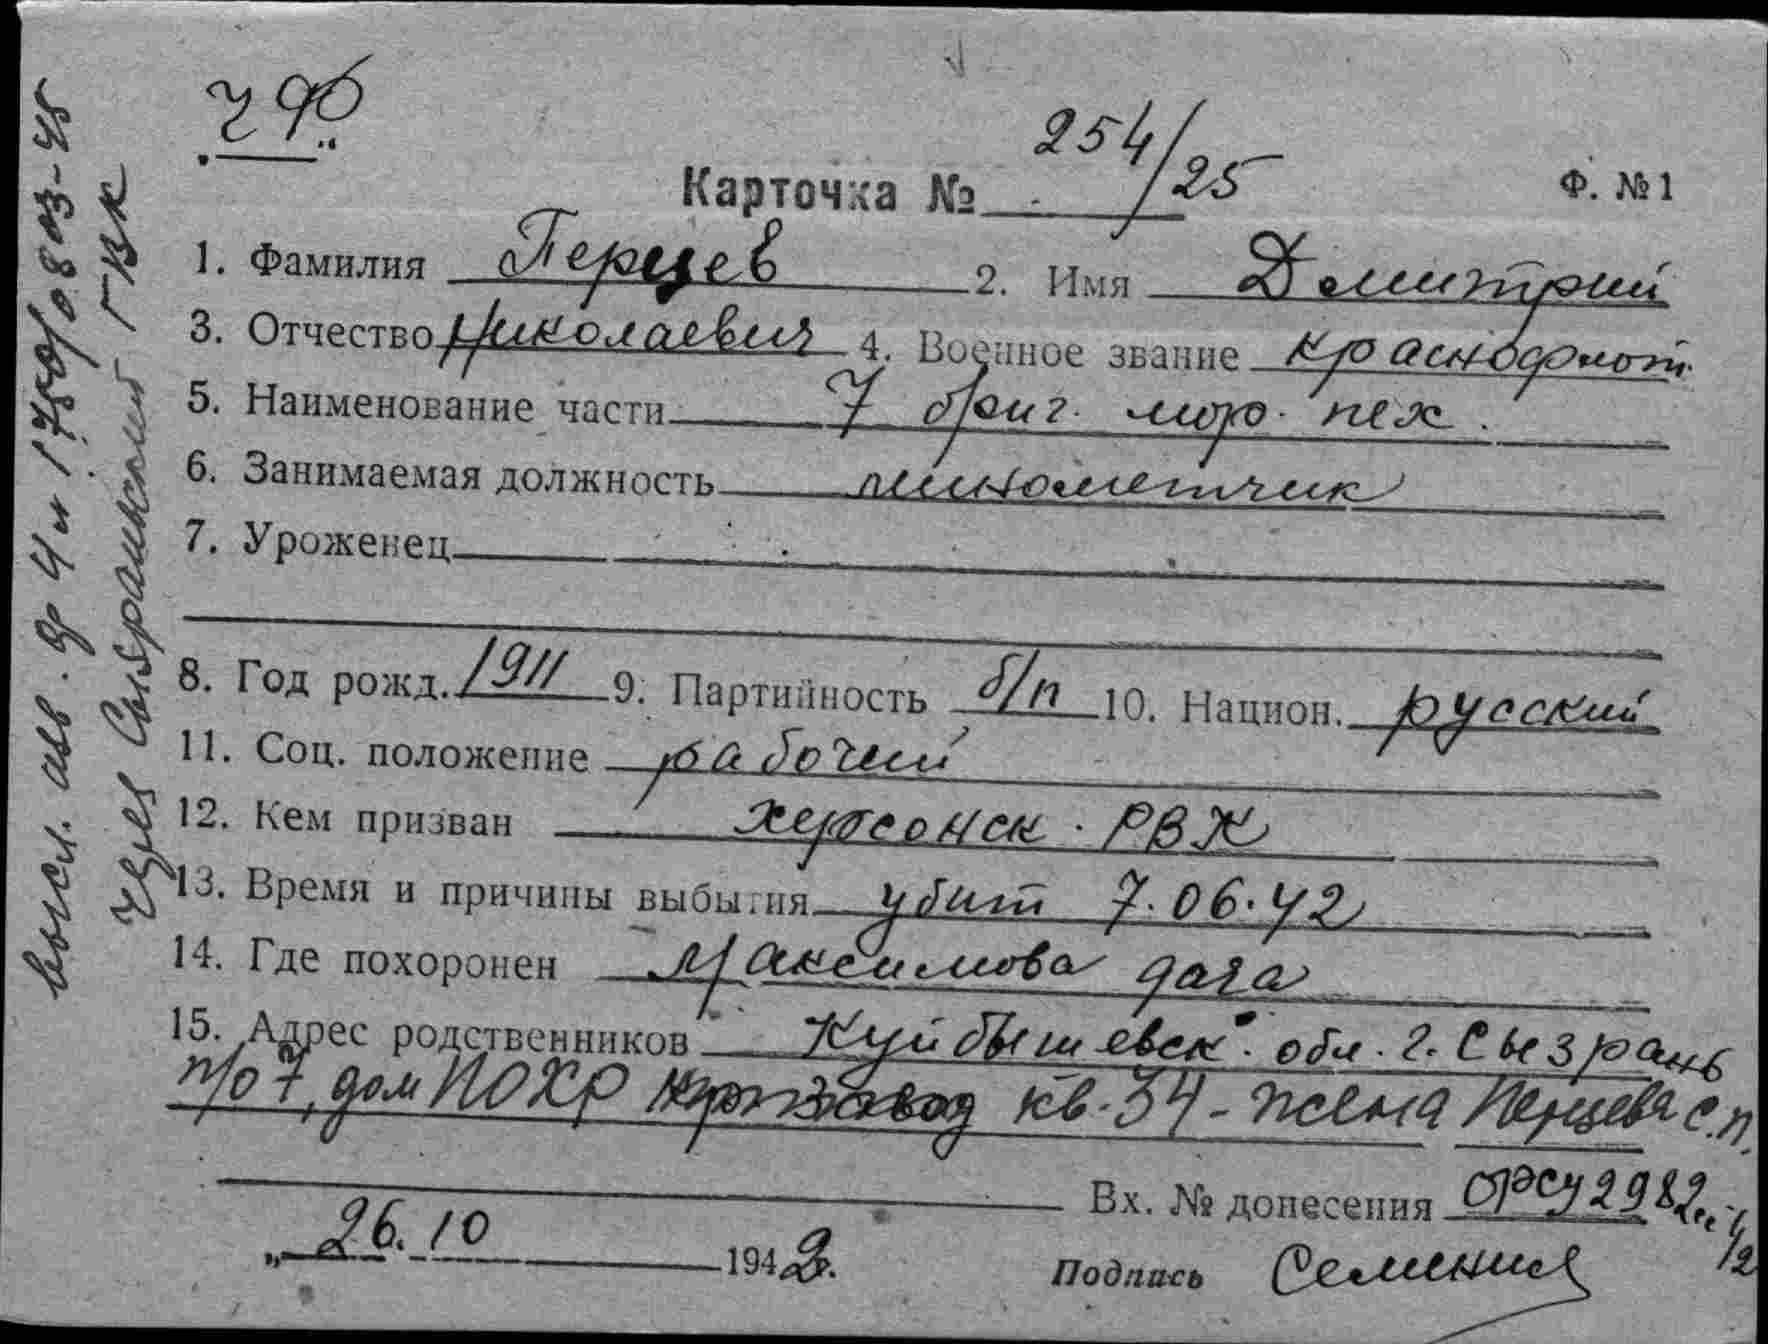 ЧФ
254/25
Карточка № Ф. №1
1. Фамилия Перцев 2. Имя Дмитрий
3. Отчество Николаевич 4. Военное звание краснофлот.
5. Наименование части 7 бриг. мор. пех.
6. Занимаемая должность минометчик
7. Уроженец
8. Год рожд. 1911 9. Партийность б/п 10. Национ. русский
11. Соц. положение рабочий
12. Кем призван Херсонск. РВК
13. Время и причины выбытия убит 7.06.42
14. Где похоронен Максимова дача
15. Адрес родственников Куйбышевск. обл. г. Сызрань
п/о 7, дом ПОХР кв. 34 - жена Перцева С.П.
Вх. № донесения ОРСУ 2982
„26.10 1942г.
Подпись
высл. изв. ф 4 и
через Сызранский ГВК